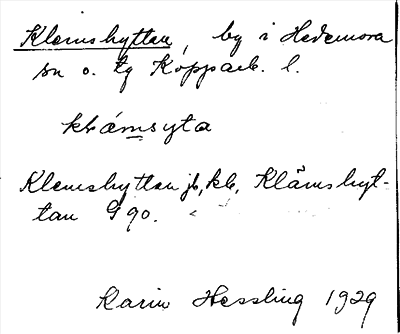 Klemshyttan, by i Hedemora
sn o. tg Kopparb. l.
klæmsyta
Klemshyttan jb, kb, Klämshyt-
tan G 90.
Karin Hessling 1929